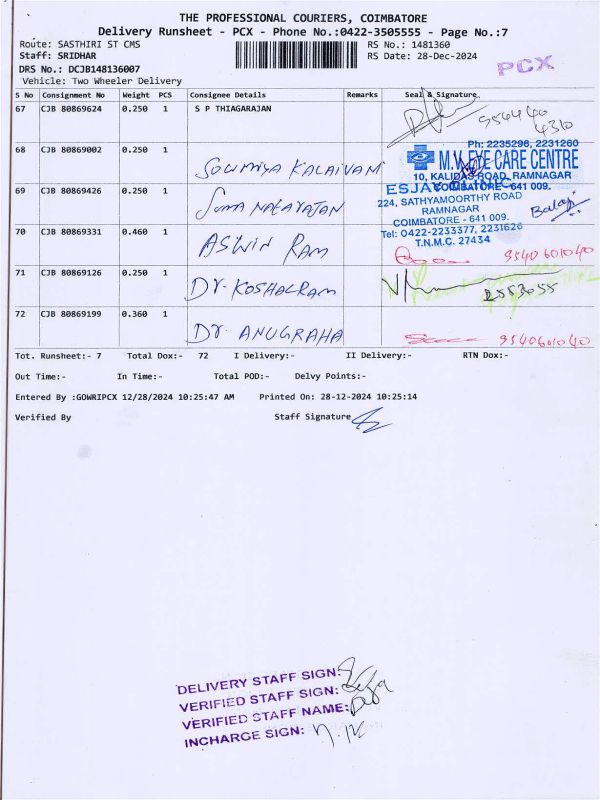 THE PROFESSIONAL COURIERS, COIMBATORE
Delivery Runsheet - PCX - Phone No.:0422-3505555 - Page No.:7
Route: SASTHIRI ST CMS RS No.: 1481360
Staff: SRIDHAR RS Date: 28-Dec-2024
DRS No.: DCJB148136007
PCX
Vehicle: Two Wheeler Delivery
S No Consignment No Weight PCS Consignee Details Remarks Seal & Signature
67 CJB 80869624 0.250 1 S P THIAGARAJAN
956440
4310
68 CJB 80869002 0.250 1 SOWMIYA KALAIVANI
Ph: 2235296, 2231260
M.V. EYE CARE CENTRE
10, KALIDAS ROAD, RAMNAGAR
COIMBATORE - 641 009.
69 CJB 80869426 0.250 1 SUMA NATARAJAN
ESJAY CLINIC
224, SATHYAMOORTHY ROAD
RAMNAGAR
COIMBATORE - 641 009.
Tel: 0422-2233377, 2231626
T.N.M.C. 27434
Balaji
70 CJB 80869331 0.460 1 ASWIN RAM 9540601040
71 CJB 80869126 0.250 1 Dr. KOSHALRAM 2553055
72 CJB 80869199 0.360 1 Dr. ANUGRAHA 9540601040
Tot. Runsheet:- 7 Total Dox:- 72 I Delivery:- II Delivery:- RTN Dox:-
Out Time:- In Time:- Total POD:- Delvy Points:-
Entered By :GOWRIPCX 12/28/2024 10:25:47 AM Printed On: 28-12-2024 10:25:14
Verified By Staff Signature
DELIVERY STAFF SIGN:
VERIFIED STAFF SIGN:
VERIFIED STAFF NAME:
INCHARGE SIGN: